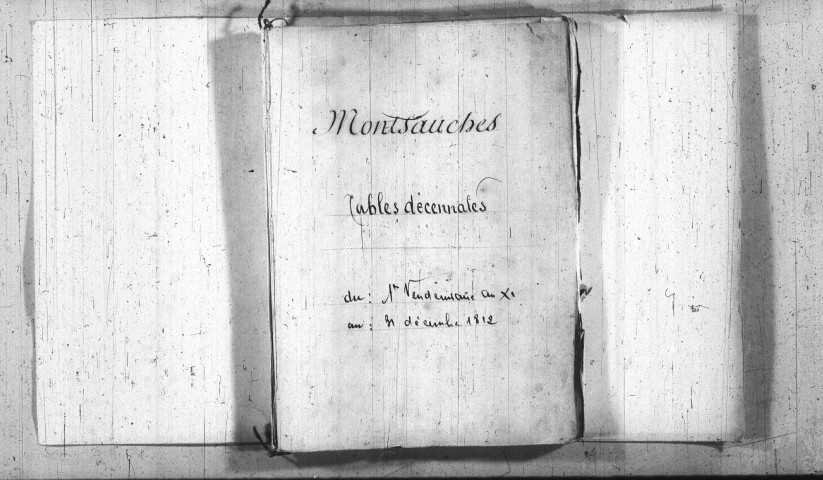 Montsauches
Tables décennales
du : 1er Vendémiaire an XI
au : 31 décembre 1812